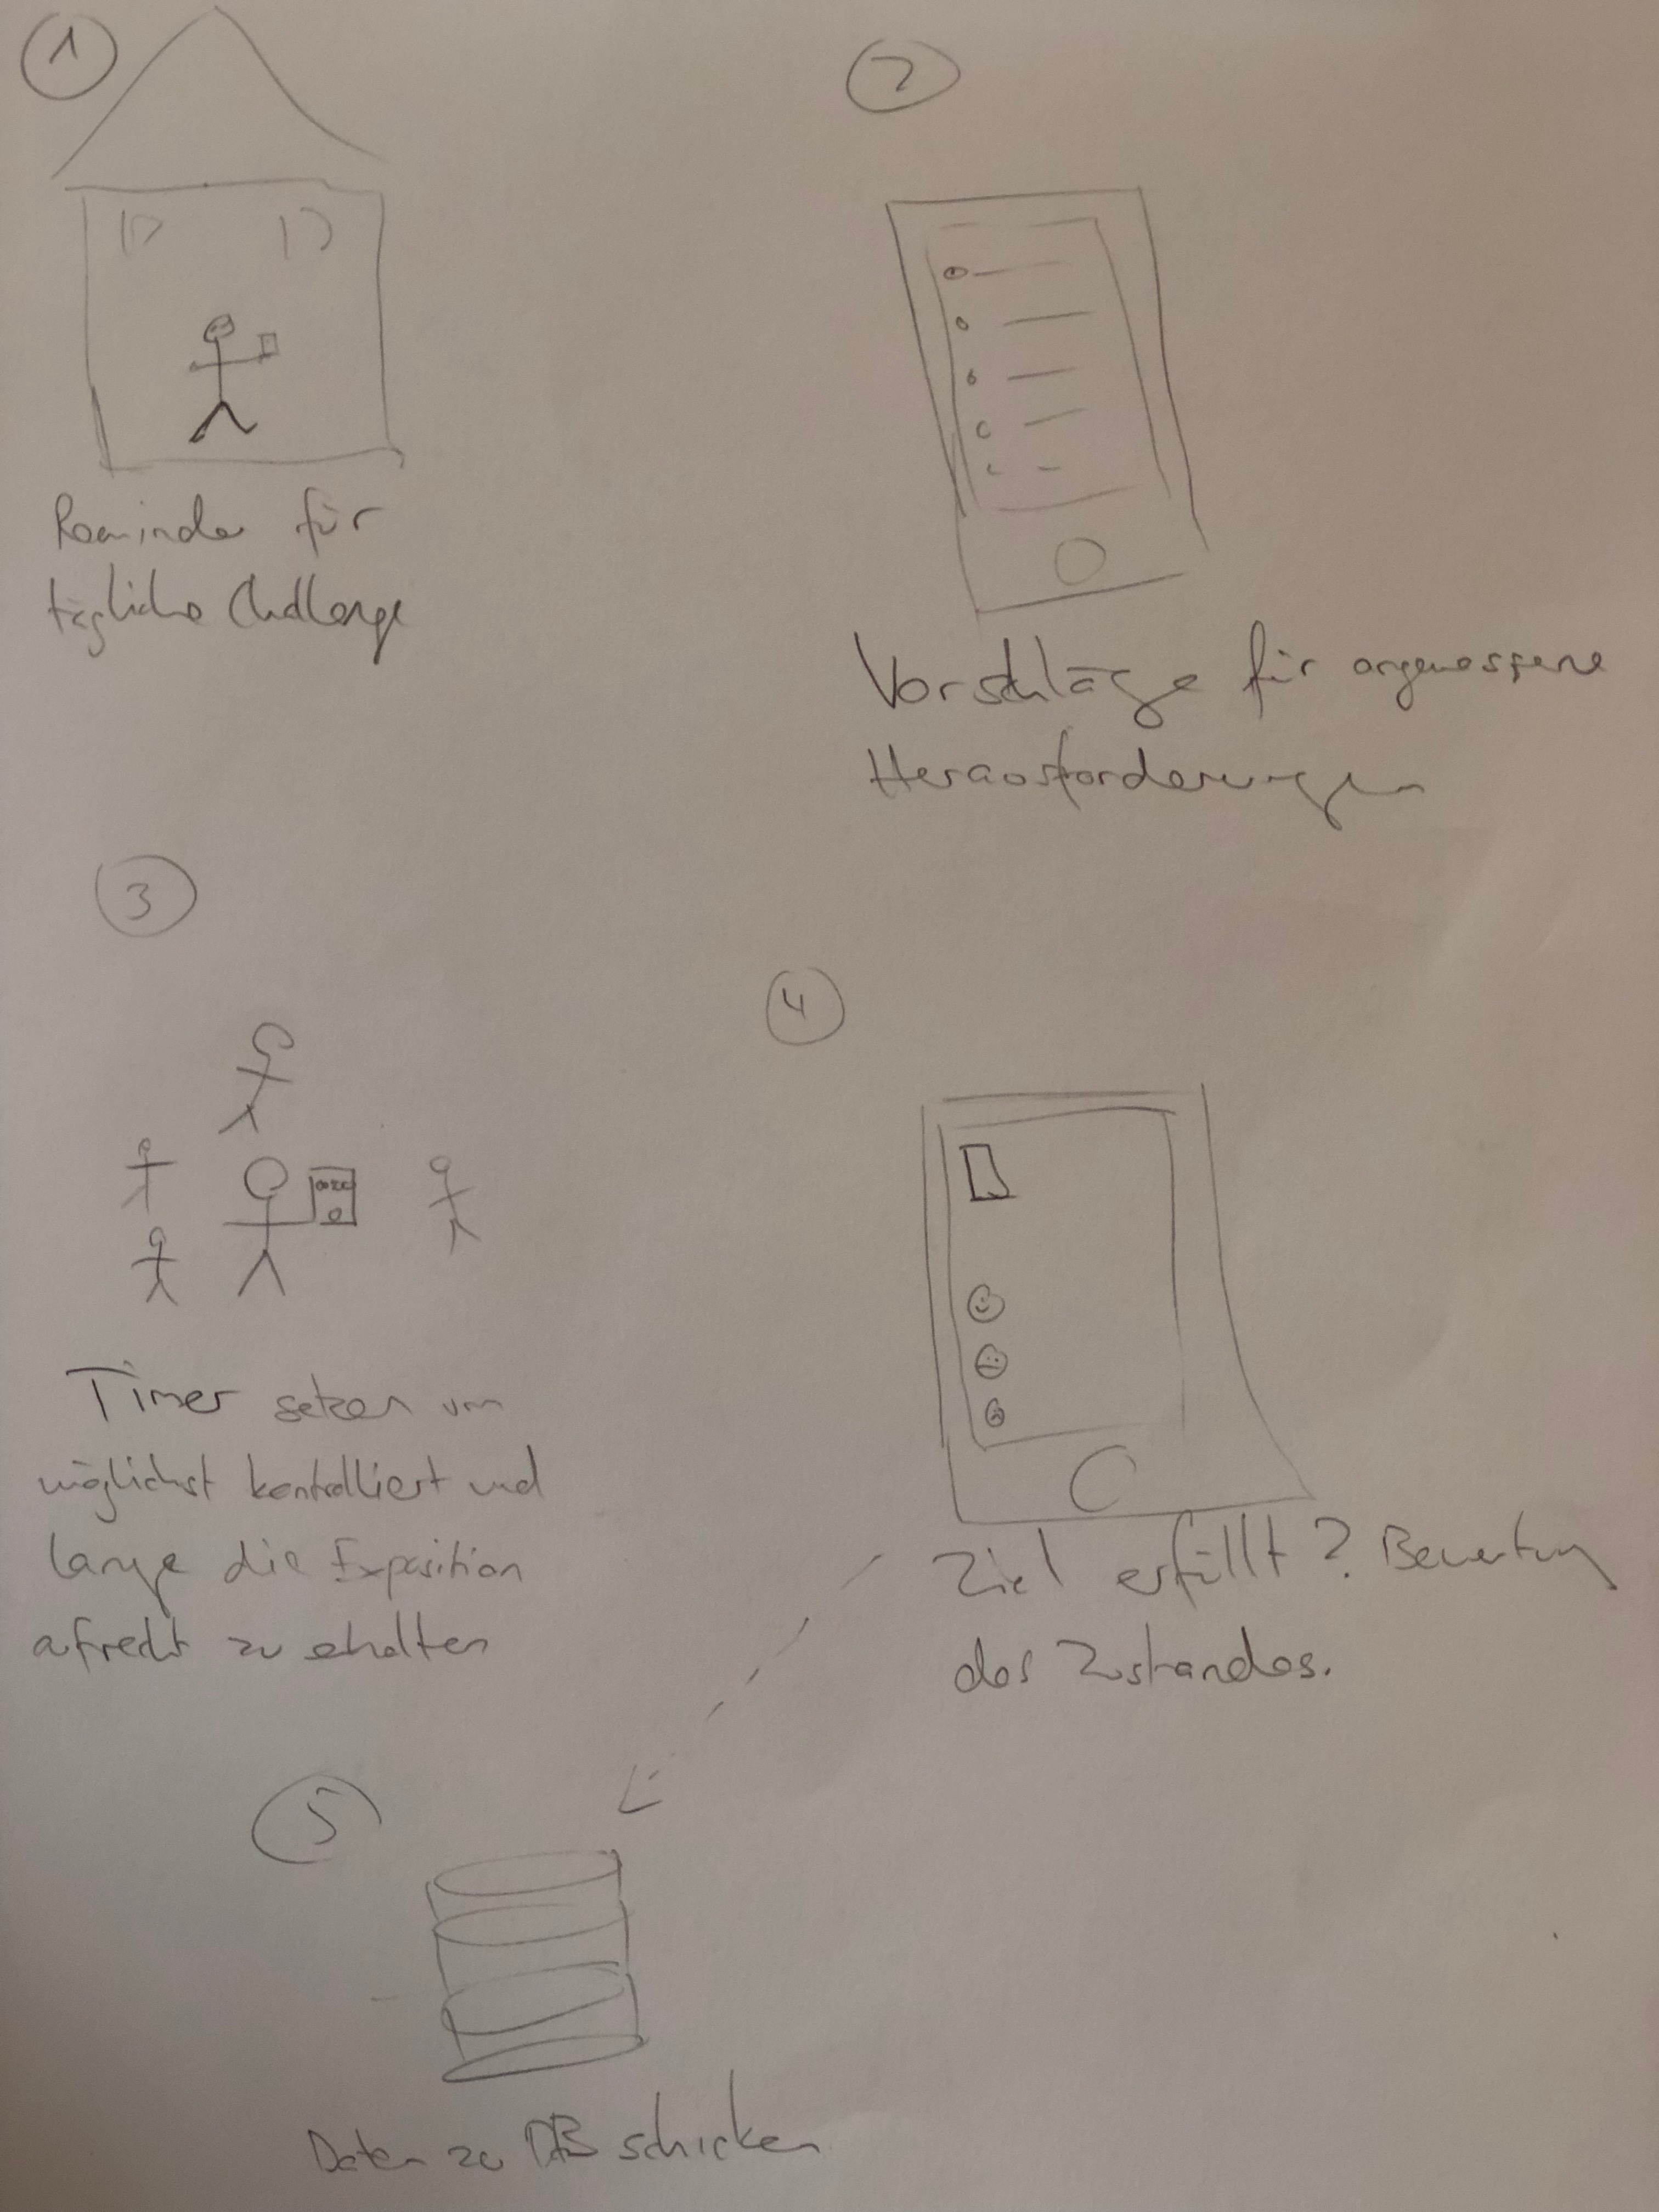 1
Reminder für
tägliche Challenge
2
Vorschläge für angemessene
Herausforderungen
3
Timer setzen um
möglichst kontrolliert und
lange die Exposition
aufrecht zu erhalten
4
Ziel erfüllt? Bewertung
des Zustandes.
5
Daten zu DB schicken